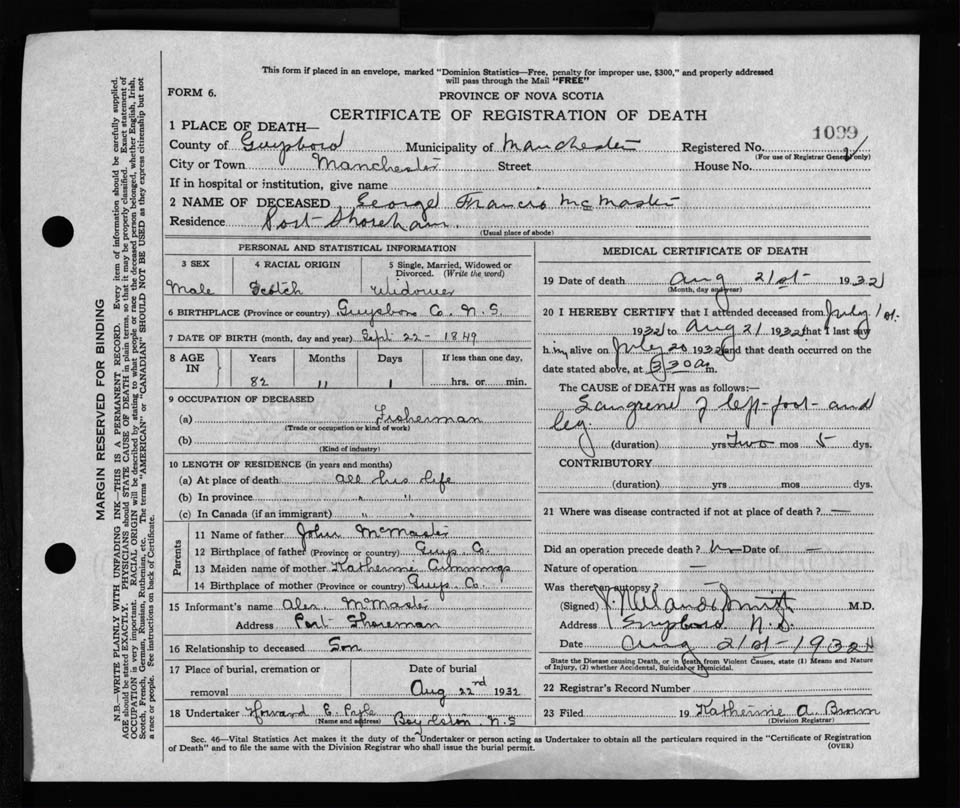 This form if placed in an envelope, marked "Dominion Statistics—Free, penalty for improper use, $300," and properly addressed
will pass through the Mail "FREE"
FORM 6.
PROVINCE OF NOVA SCOTIA
CERTIFICATE OF REGISTRATION OF DEATH
1 PLACE OF DEATH—
1099
County of Guysboro Municipality of Manchester Registered No.
(For use of Registrar General only)
City or Town Manchester Street House No.
If in hospital or institution, give name
2 NAME OF DECEASED George Francis McMaster
Residence Port Shoreham
(Usual place of abode)
PERSONAL AND STATISTICAL INFORMATION
3 SEX 4 RACIAL ORIGIN 5 Single, Married, Widowed or
Divorced. (Write the word)
Male Scotch Widower
6 BIRTHPLACE (Province or country) Guysboro Co. N.S.
7 DATE OF BIRTH (month, day and year) Sept 22 - 1849
8 AGE IN Years Months Days If less than one day,
82 11 1 hrs. or min.
9 OCCUPATION OF DECEASED
(a) Fisherman
(Trade or occupation or kind of work)
(b)
(Kind of industry)
10 LENGTH OF RESIDENCE (in years and months)
(a) At place of death All his life
(b) In province " "
(c) In Canada (if an immigrant) " "
Parents
11 Name of father John McMaster
12 Birthplace of father (Province or country) Guys Co.
13 Maiden name of mother Katherine Cummings
14 Birthplace of mother (Province or country) Guys Co.
15 Informant's name Alex McMaster
Address Port Shoreman
16 Relationship to deceased Son
17 Place of burial, cremation or Date of burial
removal Aug 22nd 1932
18 Undertaker Howard E. Pyle Boylston N.S
(Name and address)
MEDICAL CERTIFICATE OF DEATH
19 Date of death Aug 21st 1932
(Month, day and year)
20 I HEREBY CERTIFY that I attended deceased from July 1st
1932 to Aug 21 1932 that I last saw
him alive on July 20 1932 and that death occurred on the
date stated above, at 3 30 a m.
The CAUSE OF DEATH was as follows:—
Gangrene of left foot and
leg.
(duration) yrs Two mos 5 dys.
CONTRIBUTORY
(duration) yrs mos dys.
21 Where was disease contracted if not at place of death? —
Did an operation precede death? Date of —
Nature of operation —
Was there an autopsy?
(Signed) Smith M.D.
Address Guysboro N.S.
Date Aug 21st - 1932
State the Disease causing Death, or in death from Violent Causes, state (1) Means and Nature
of Injury, (2) whether Accidental, Suicidal or Homicidal.
22 Registrar's Record Number
23 Filed 19 Katherine A. Brown
(Division Registrar)
Sec. 46—Vital Statistics Act makes it the duty of the Undertaker or person acting as Undertaker to obtain all the particulars required in the "Certificate of Registration
of Death" and to file the same with the Division Registrar who shall issue the burial permit.
(OVER)
MARGIN RESERVED FOR BINDING
N.B.—WRITE PLAINLY WITH UNFADING INK—THIS IS A PERMANENT RECORD. Every item of information should be carefully supplied.
AGE should be stated EXACTLY. PHYSICIANS should STATE CAUSE OF DEATH in plain terms, so that it may be properly classified. Exact statement of
OCCUPATION is very important. RACIAL ORIGIN will be described by stating to what people or race the deceased person belonged, whether English, Irish,
Scotch, French, German, Russian, Ruthenian, etc. The terms "AMERICAN" or "CANADIAN" SHOULD NOT BE USED as they express citizenship but not
a race or people. See instructions on back of Certificate.